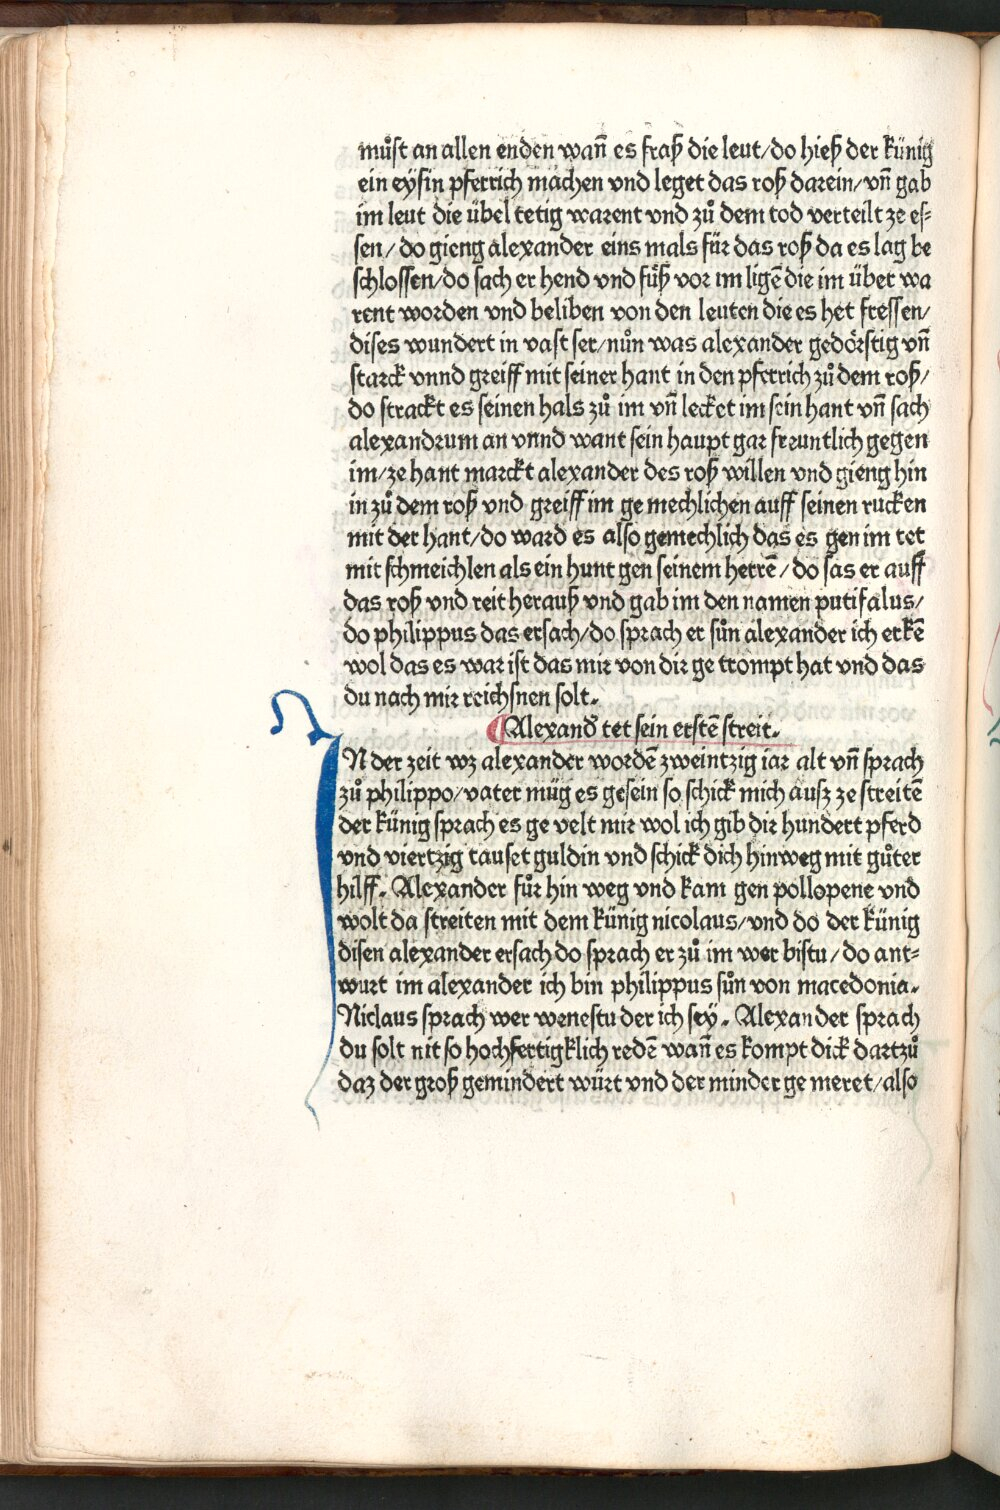 můst an allen enden wan̄ es fraß die leut/do hieß der künig
ein eysin pferrich machen vnd leget das roß darein/vn̄ gab
im leut die übel tetig warent vnd zů dem tod verteilt ze es⸗
sen/do gieng alexander eins mals für das roß da es lag be
schlossen/do sach er hend vnd füß vor im ligē die im über wa
rent worden vnd beliben von den leuten die es het fressen/
dises wundert in vast ser/nůn was alexander gedörstig vn̄
starck vnnd greiff mit seiner hant in den pferrich zů dem roß/
do strackt es seinen hals zů im vn̄ lecket im sein hant vn̄ sach
alexandrum an vnnd want sein haupt gar freuntlich gegen
im/ze hant marckt alexander des roß willen vnd gieng hin
in zů dem roß vnd greiff im ge mechlichen auff seinen rucken
mit der hant/do ward es also gemechlich das es gen im tet
mit schmeichlen als ein hunt gen seinem herrē/do sas er auff
das roß vnd reit herauß vnd gab im den namen putifalus/
do philippus das ersach/do sprach er sůn alexander ich erkē
wol das es war ist das mir von dir ge trompt hat vnd das
du nach mir reichsnen solt.
Alexand̄ tet sein erstē streit.
IN der zeit wz alexander wordē zweintzig iar alt vn̄ sprach
zů philippo/vater müg es gesein so schick mich ausz ze streitē
der künig sprach es ge velt mir wol ich gib dir hundert pferd
vnd viertzig tauset guldin vnd schick dich hinweg mit gůter
hilff. Alexander fůr hin weg vnd kam gen pollopene vnd
wolt da streiten mit dem künig nicolaus/vnd do der künig
disen alexander ersach do sprach er zů im wer bistu/do ant⸗
wurt im alexander ich bin philippus sůn von macedonia.
Niclaus sprach wer wenestu der ich sey. Alexander sprach
du solt nit so hochfertigklich redē wan̄ es kompt dick dartzů
daz der groß gemindert würt vnd der minder ge meret/also